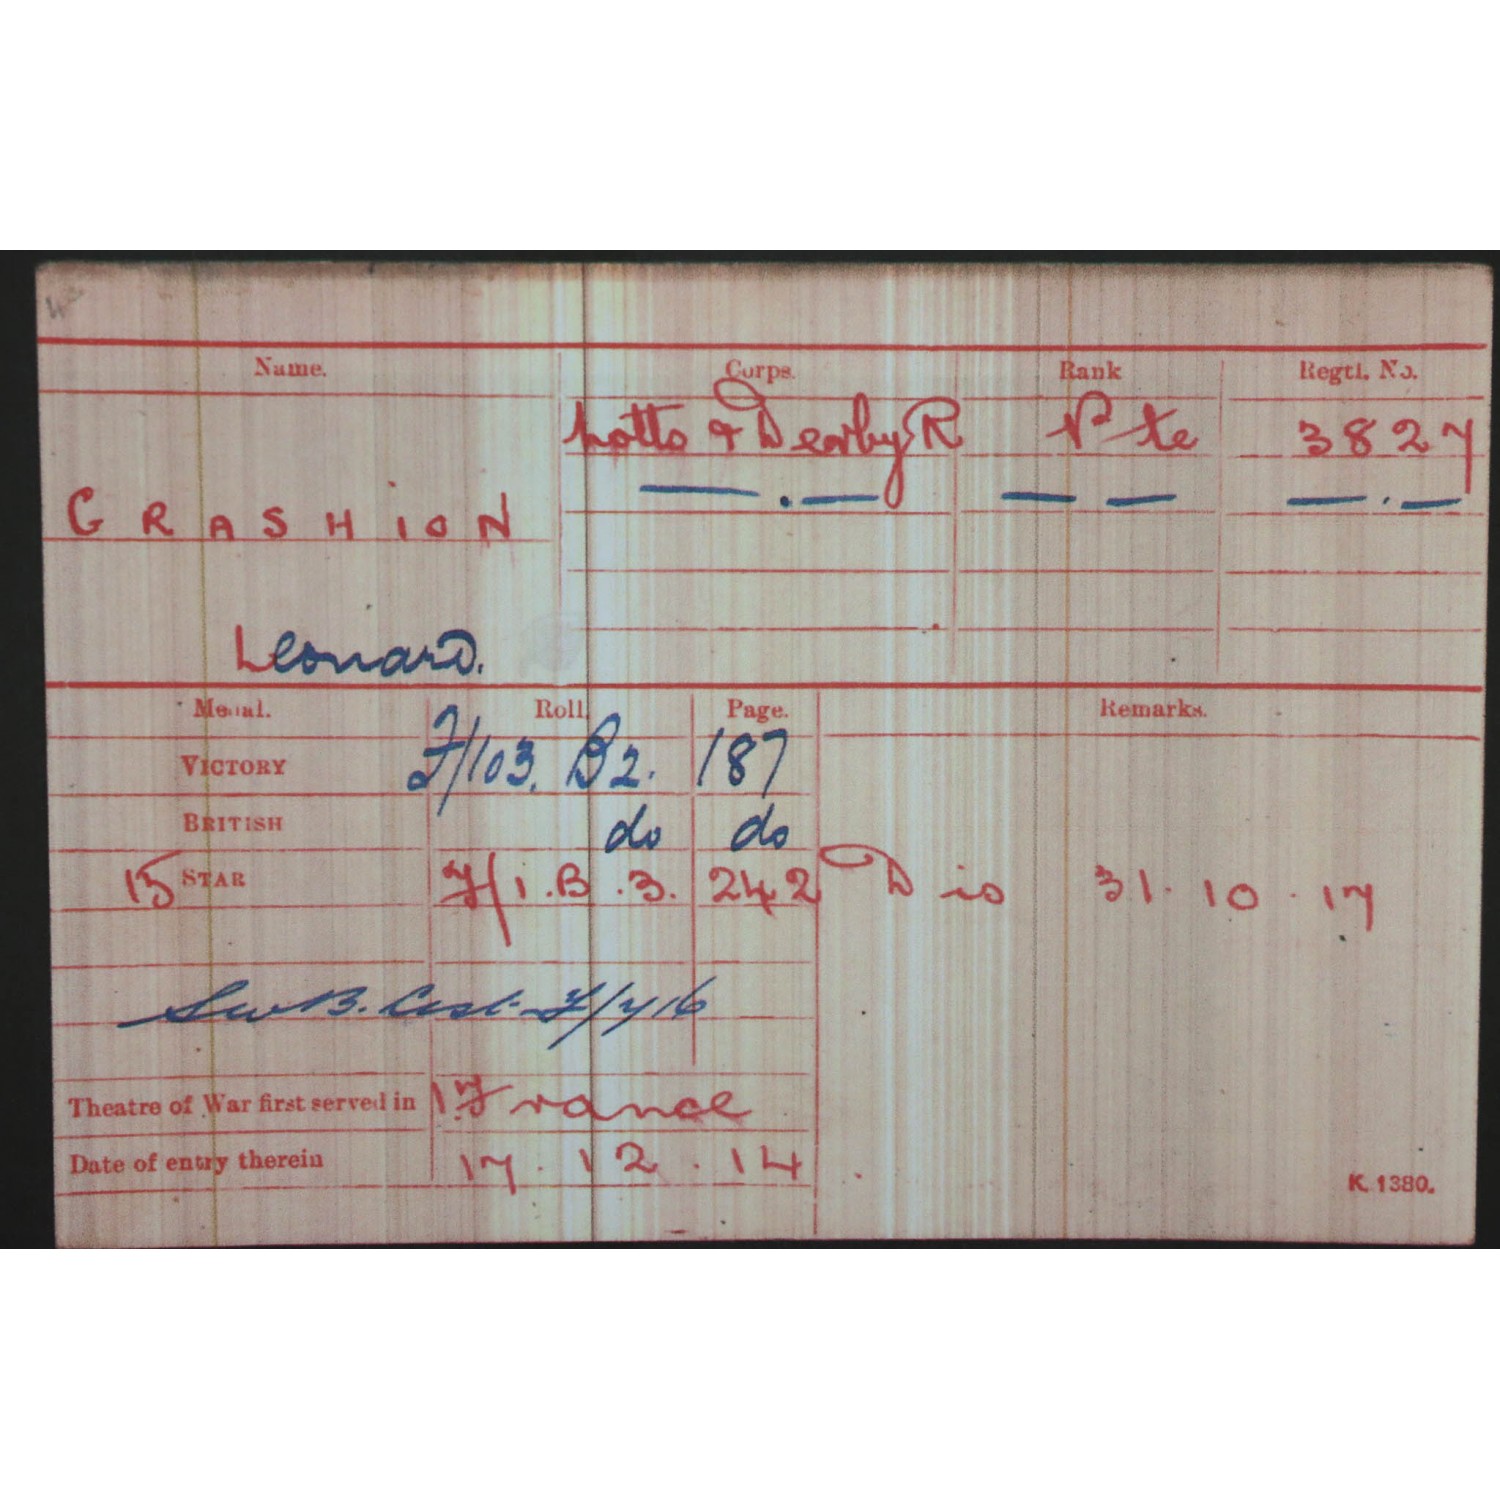 Name. Corps. Rank Regtl. No.
Notts & Derby R Pte 3827
GRASHION
Leonard.
Medal. Roll. Page. Remarks.
VICTORY F/103. B2. 187
BRITISH do do
15 STAR F/1.B.3. 242 Dis 31.10.17
SWB. List F/716
Theatre of War first served in 1 France
Date of entry therein 17.12.14
K. 1380.